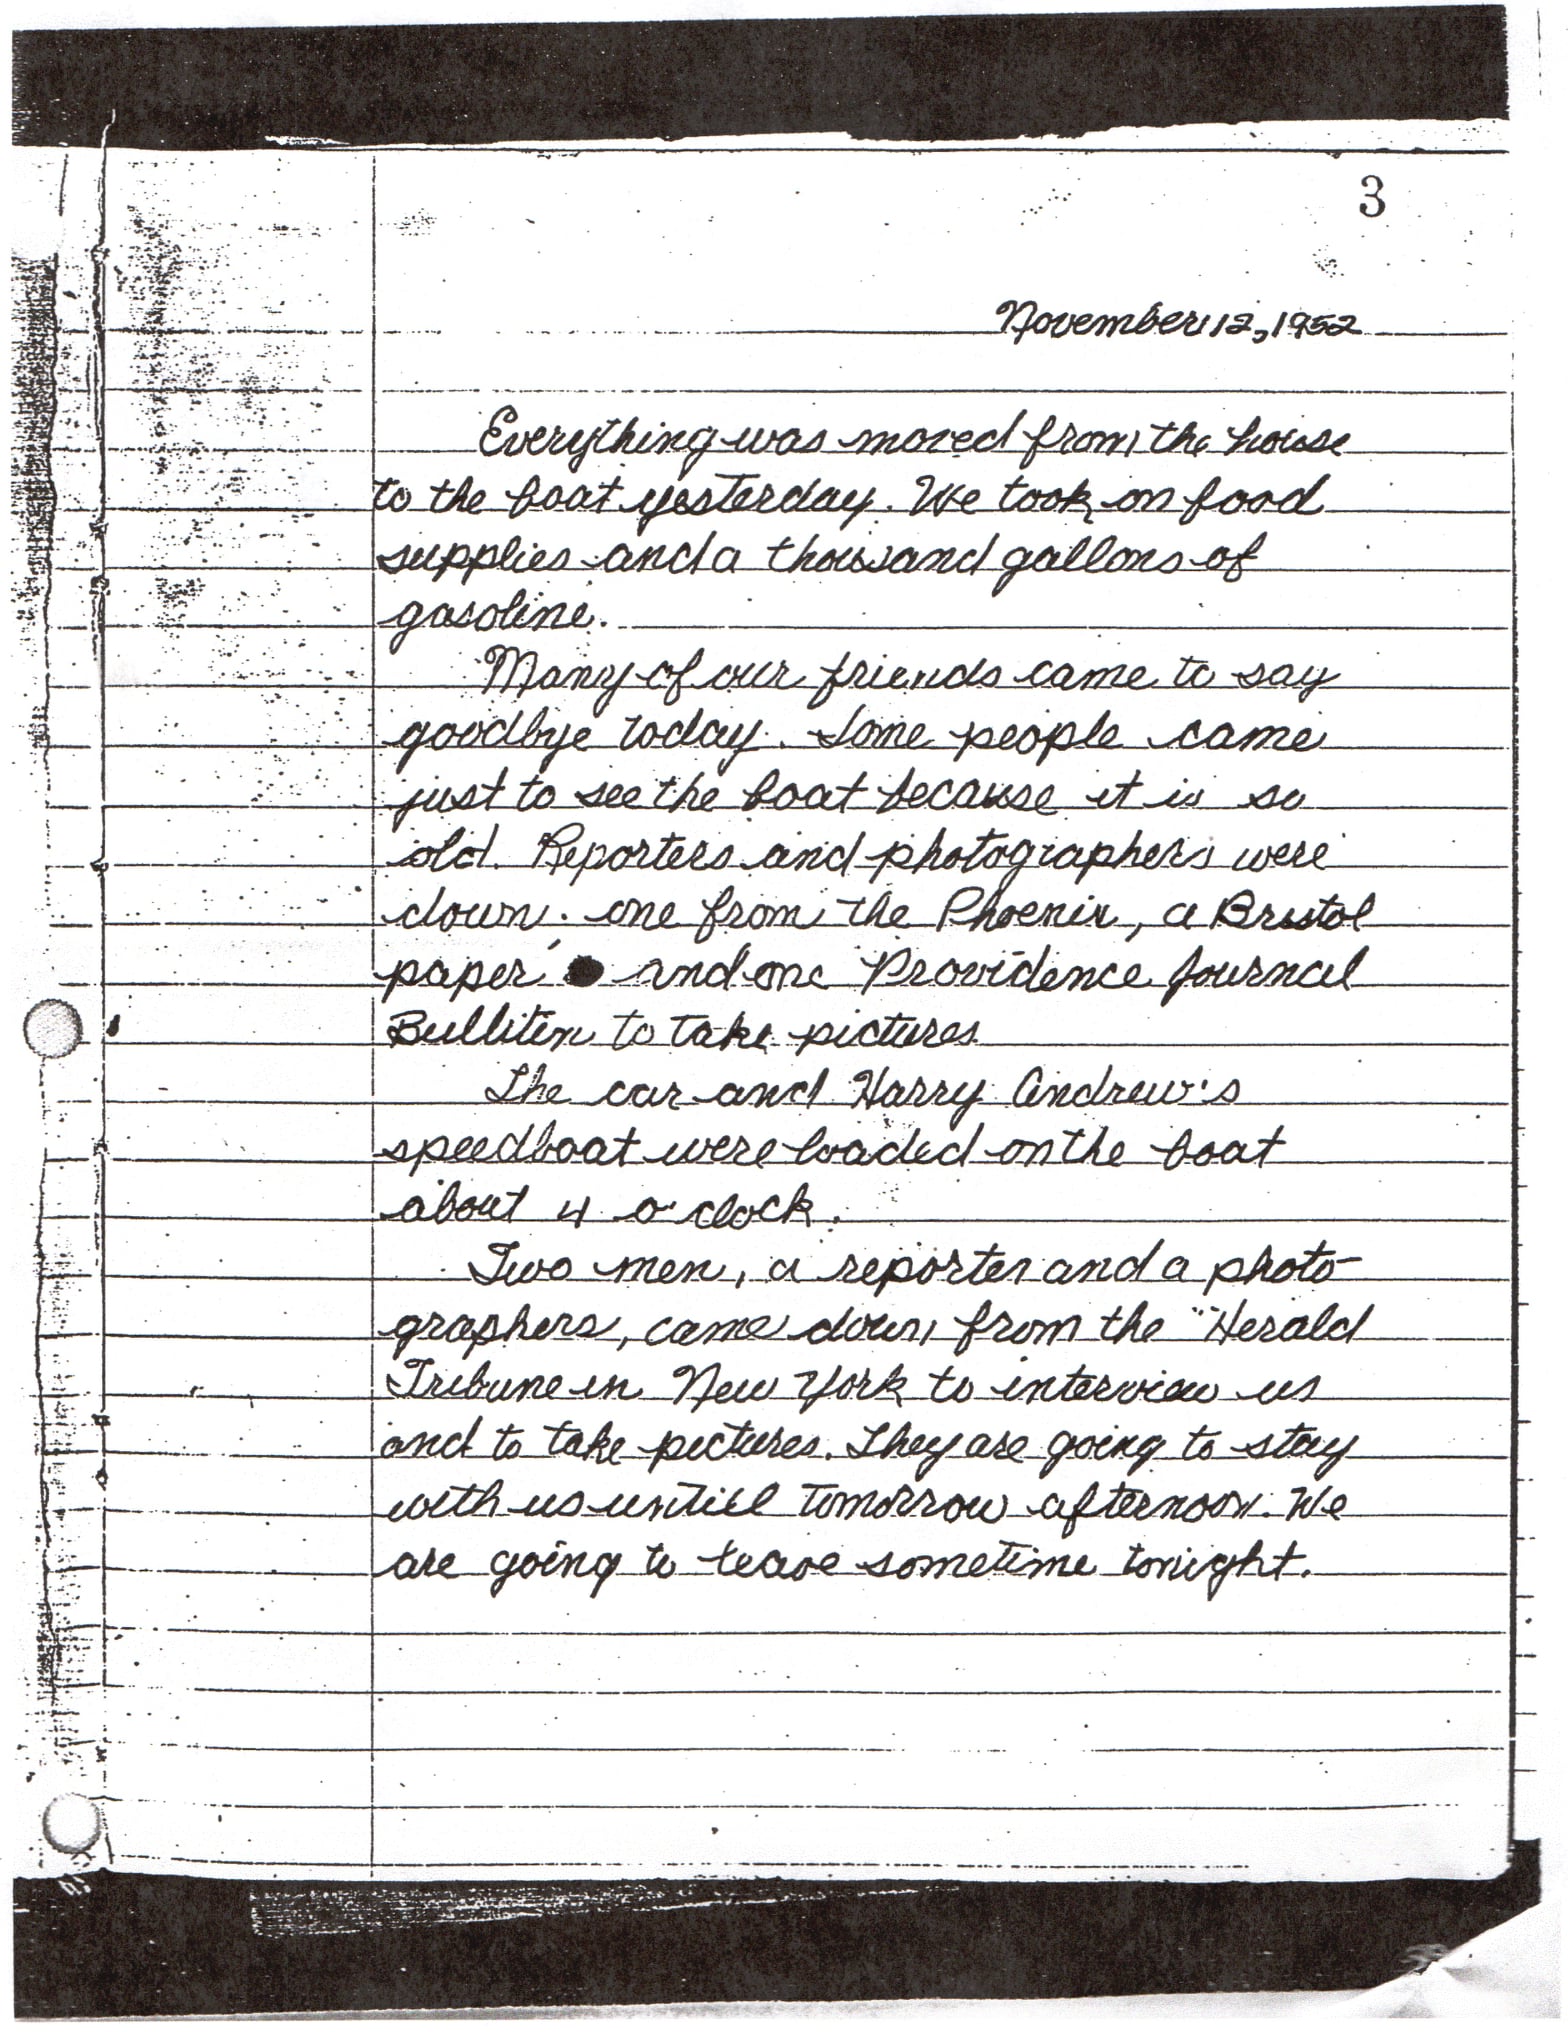 3
November 12, 1952
Everything was moved from the house
to the boat yesterday. We took on food
supplies and a thousand gallons of
gasoline.
Many of our friends came to say
goodbye today. Some people came
just to see the boat because it is so
old. Reporters and photographers were
down; one from the Phoenix, a Bristol
paper, and one Providence Journal
Bullitin to take pictures
The car and Harry Andrew's
speedboat were loaded on the boat
about 4 o'clock.
Two men, a reporter and a photo-
graphers, came down from the "Herald
Tribune in New York to interview us
and to take pictures. They are going to stay
with us untill tomorrow afternoon. We
are going to leave sometime tonight.